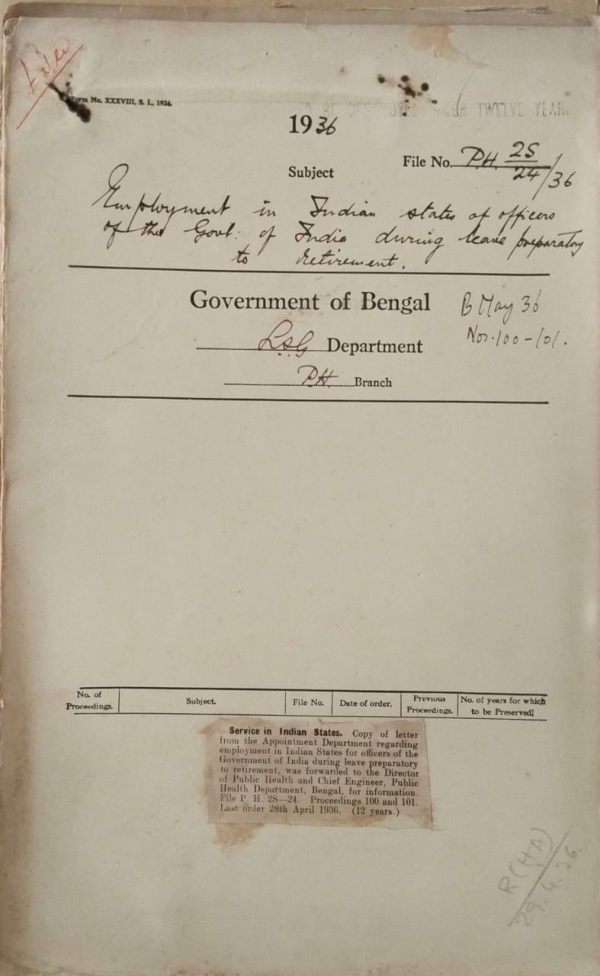 Form No. XXXVIII, S. I., 1934.
TWELVE YEARS
1936
File No. P.H. 2S/24/36
Subject
Employment in Indian states of officers
of the Govt. of India during leave preparatory
to retirement.
Government of Bengal
B May 36
Nos. 100-101.
L.S.G Department
P.H. Branch
No. of Proceedings. Subject. File No. Date of order. Previous Proceedings. No. of years for which to be Preserved
Service in Indian States. Copy of letter
from the Appointment Department regarding
employment in Indian States for officers of the
Government of India during leave preparatory
to retirement, was forwarded to the Director
of Public Health and Chief Engineer, Public
Health Department, Bengal, for information.
File P. H. 2S—24. Proceedings 100 and 101.
Last order 28th April 1936. (12 years.)
R(HA)
29.4.36.